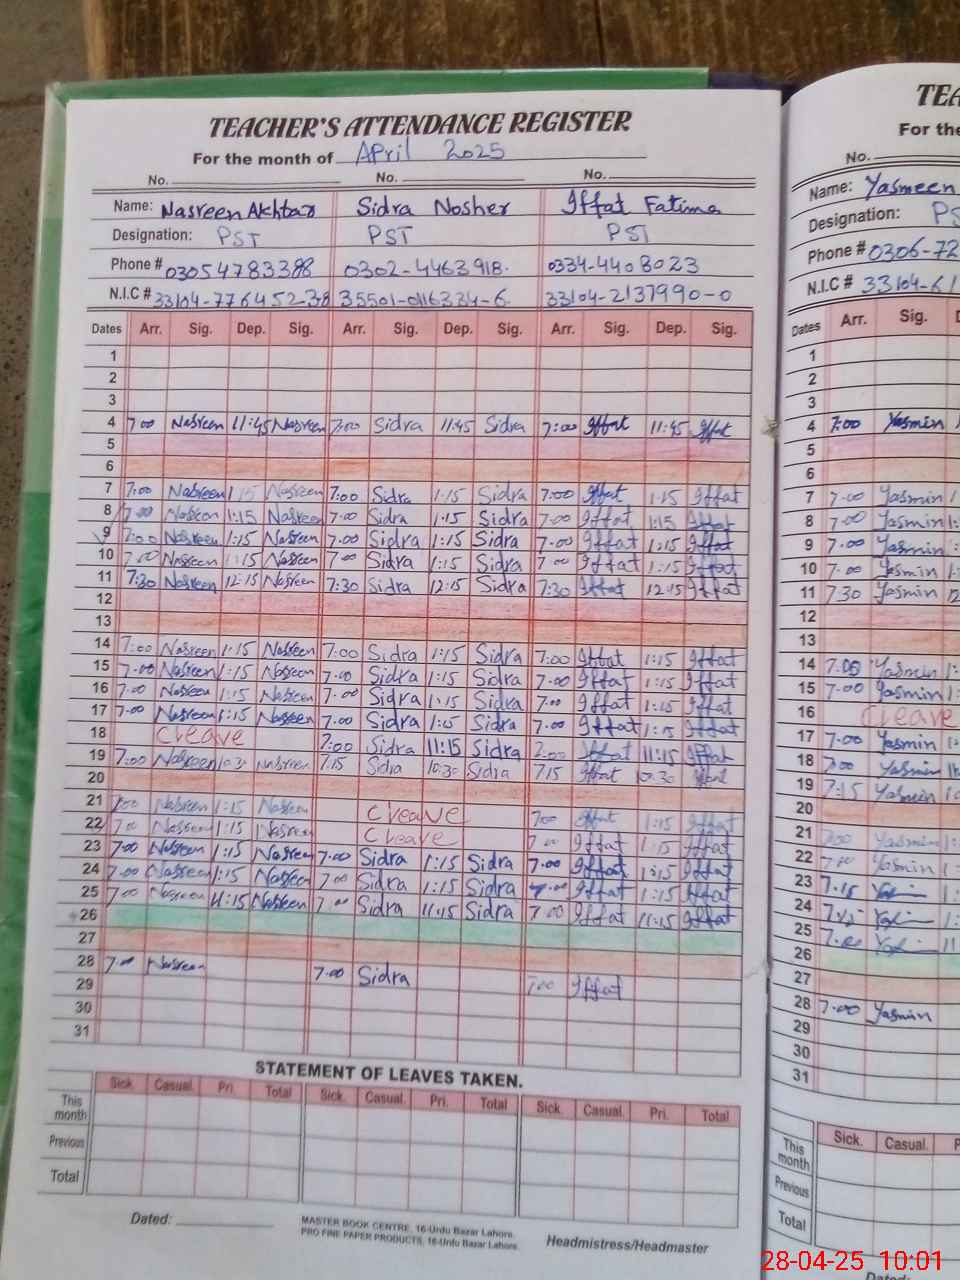 TEACHER'S ATTENDANCE REGISTER
For the month of April 2025
No. No. No.
Name: Nasreen Akhtar Sidra Nosher Iffat Fatima
Designation: PST PST PST
Phone # 03054783388 0302-4463918. 0334-4408023
N.I.C # 33104-7764523-8 35501-0116334-6 33104-2137990-0
Dates Arr. Sig. Dep. Sig. Arr. Sig. Dep. Sig. Arr. Sig. Dep. Sig.
1
2
3
4 7:00 Nasreen 11:45 Nasreen 7:00 Sidra 11:45 Sidra 7:00 Iffat 11:45 Iffat
5
6
7 7:00 Nasreen 1:15 Nasreen 7:00 Sidra 1:15 Sidra 7:00 Iffat 1:15 Iffat
8 7:00 Nasreen 1:15 Nasreen 7:00 Sidra 1:15 Sidra 7:00 Iffat 1:15 Iffat
9 7:00 Nasreen 1:15 Nasreen 7:00 Sidra 1:15 Sidra 7:00 Iffat 1:15 Iffat
10 7:00 Nasreen 1:15 Nasreen 7:00 Sidra 1:15 Sidra 7:00 Iffat 1:15 Iffat
11 7:30 Nasreen 12:15 Nasreen 7:30 Sidra 12:15 Sidra 7:30 Iffat 12:15 Iffat
12
13
14 7:00 Nasreen 1:15 Nasreen 7:00 Sidra 1:15 Sidra 7:00 Iffat 1:15 Iffat
15 7:00 Nasreen 1:15 Nasreen 7:00 Sidra 1:15 Sidra 7:00 Iffat 1:15 Iffat
16 7:00 Nasreen 1:15 Nasreen 7:00 Sidra 1:15 Sidra 7:00 Iffat 1:15 Iffat
17 7:00 Nasreen 1:15 Nasreen 7:00 Sidra 1:15 Sidra 7:00 Iffat 1:15 Iffat
18 Cleave 7:00 Sidra 11:15 Sidra 7:00 Iffat 11:15 Iffat
19 7:00 Nasreen 10:3 Nasreen 7:15 Sidra 10:30 Sidra 7:15 Iffat 10:30 Iffat
20
21 7:00 Nasreen 1:15 Nasreen Cleave 7:00 Iffat 1:15 Iffat
22 7:00 Nasreen 1:15 Nasreen Cleave 7:00 Iffat 1:15 Iffat
23 7:00 Nasreen 1:15 Nasreen 7:00 Sidra 1:15 Sidra 7:00 Iffat 1:15 Iffat
24 7:00 Nasreen 1:15 Nasreen 7:00 Sidra 1:15 Sidra 7:00 Iffat 1:15 Iffat
25 7:00 Nasreen 11:15 Nasreen 7:00 Sidra 11:15 Sidra 7:00 Iffat 11:15 Iffat
26
27
28 7:00 Nasreen 7:00 Sidra 7:00 Iffat
29
30
31
STATEMENT OF LEAVES TAKEN.
Sick. Casual. Pri. Total Sick. Casual. Pri. Total Sick. Casual. Pri. Total
This month
Previous
Total
Dated:
MASTER BOOK CENTRE, 16-Urdu Bazar Lahore.
PRO FINE PAPER PRODUCTS, 16-Urdu Bazar Lahore.
Headmistress/Headmaster
TEA
For the
No.
Name: Yasmeen
Designation: PS
Phone # 0306-72
N.I.C # 33104-61
Dates Arr. Sig. D
1
2
3
4 7:00 Yasmin
5
6
7 7:00 Yasmin 1
8 7:00 Yasmin 1:
9 7:00 Yasmin
10 7:00 Yasmin 1:
11 7:30 Yasmin 12
12
13
14 7:00 Yasmin 1:
15 7:00 Yasmin 1:
16 Cleave
17 7:00 Yasmin
18 7:00 Yasmin
19 7:15 Yasmin
20
21 7:00 Yasmin 1:
22 7:00 Yasmin 1
23 7:15
24
25 7:00 11
26
27
28 7:00 Yasmin
29
30
31
Sick. Casual. P
This month
Previous
Total
Dated:
28-04-25 10:01